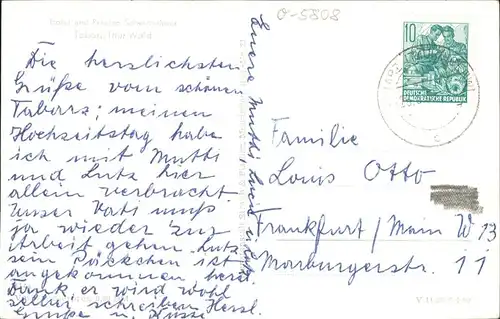 O-5808
Tabarz, Thür. Wald
Die herzlichsten
Grüße vom schönen
Tabarz; meinen
Hochzeitstag habe
ich mit Mutti
und Lutz hier
allein verbracht.
Unser Vati muß
ja wieder zur
Arbeit gehen. Lutz
sein Päckchen ist
angekommen herzl.
Dank, er wird wohl
selbst schreiben. Herzl.
Grüße u. Küsse
Eure Mutti,
10
DEUTSCHE
DEMOKRATISCHE REPUBLIK
Familie
Louis Otto
Frankfurt/Main W 13
Marburgerstr. 11